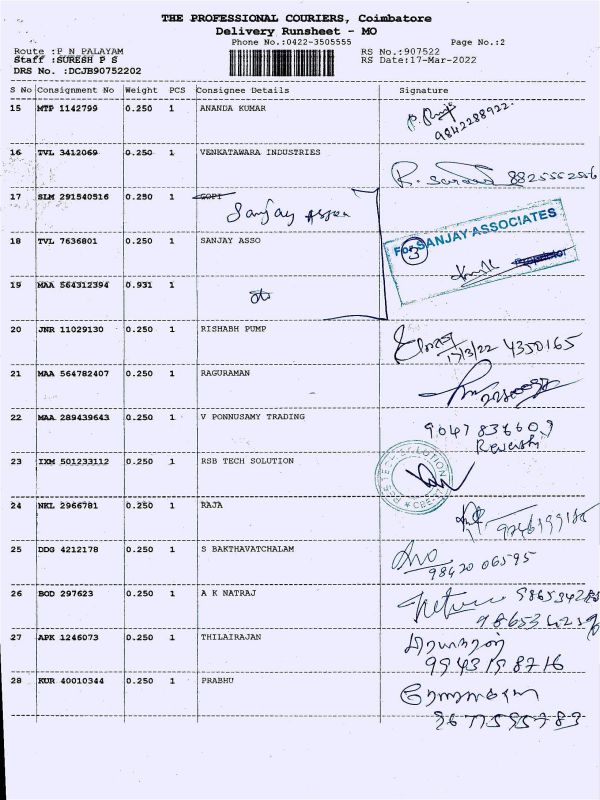 THE PROFESSIONAL COURIERS, Coimbatore
Delivery Runsheet - MO
Phone No.:0422-3505555 Page No.:2
Route :P N PALAYAM RS No.:907522
Staff :SURESH P S RS Date:17-Mar-2022
DRS No. :DCJB90752202
S No Consignment No Weight PCS Consignee Details Signature
15 MTP 1142799 0.250 1 ANANDA KUMAR
9842288922
16 TVL 3412069 0.250 1 VENKATAWARA INDUSTRIES
17 SLM 291540516 0.250 1 GOPI
Sanjay Asso
18 TVL 7636801 0.250 1 SANJAY ASSO
For SANJAY ASSOCIATES
3
Proprietor
19 MAA 564312394 0.931 1
do
20 JNR 11029130 0.250 1 RISHABH PUMP
17/3/22 4350165
21 MAA 564782407 0.250 1 RAGURAMAN
22 MAA 289439643 0.250 1 V PONNUSAMY TRADING
23 IXM 501233112 0.250 1 RSB TECH SOLUTION
24 NKL 2966781 0.250 1 RAJA
25 DDG 4212178 0.250 1 S BAKTHAVATCHALAM
98420 06595
26 BOD 297623 0.250 1 A K NATRAJ
27 APK 1246073 0.250 1 THILAIRAJAN
28 KUR 40010344 0.250 1 PRABHU